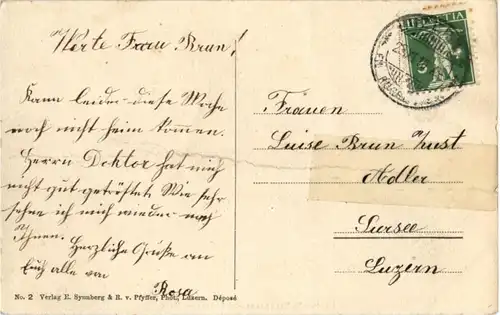 Werte Frau Brun!
Kann leider diese Woche
noch nicht heim kommen.
Herrn Doktor hat mich
nicht gut getröstet. Wie sehr
sehne ich mich wieder nach
Ihnen. Herzliche Grüße an
Euch alle von
Rosa
No. 2 Verlag E. Synnberg & R. v. Pfyffer, Phot., Luzern. Déposé
HELVETIA
5
Frauen
Luise Brun z/ust
Adler
Sursee
Luzern